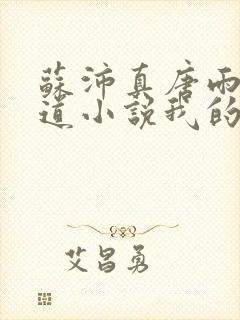 蘇沛真唐雨
道小説我的
艾昌勇